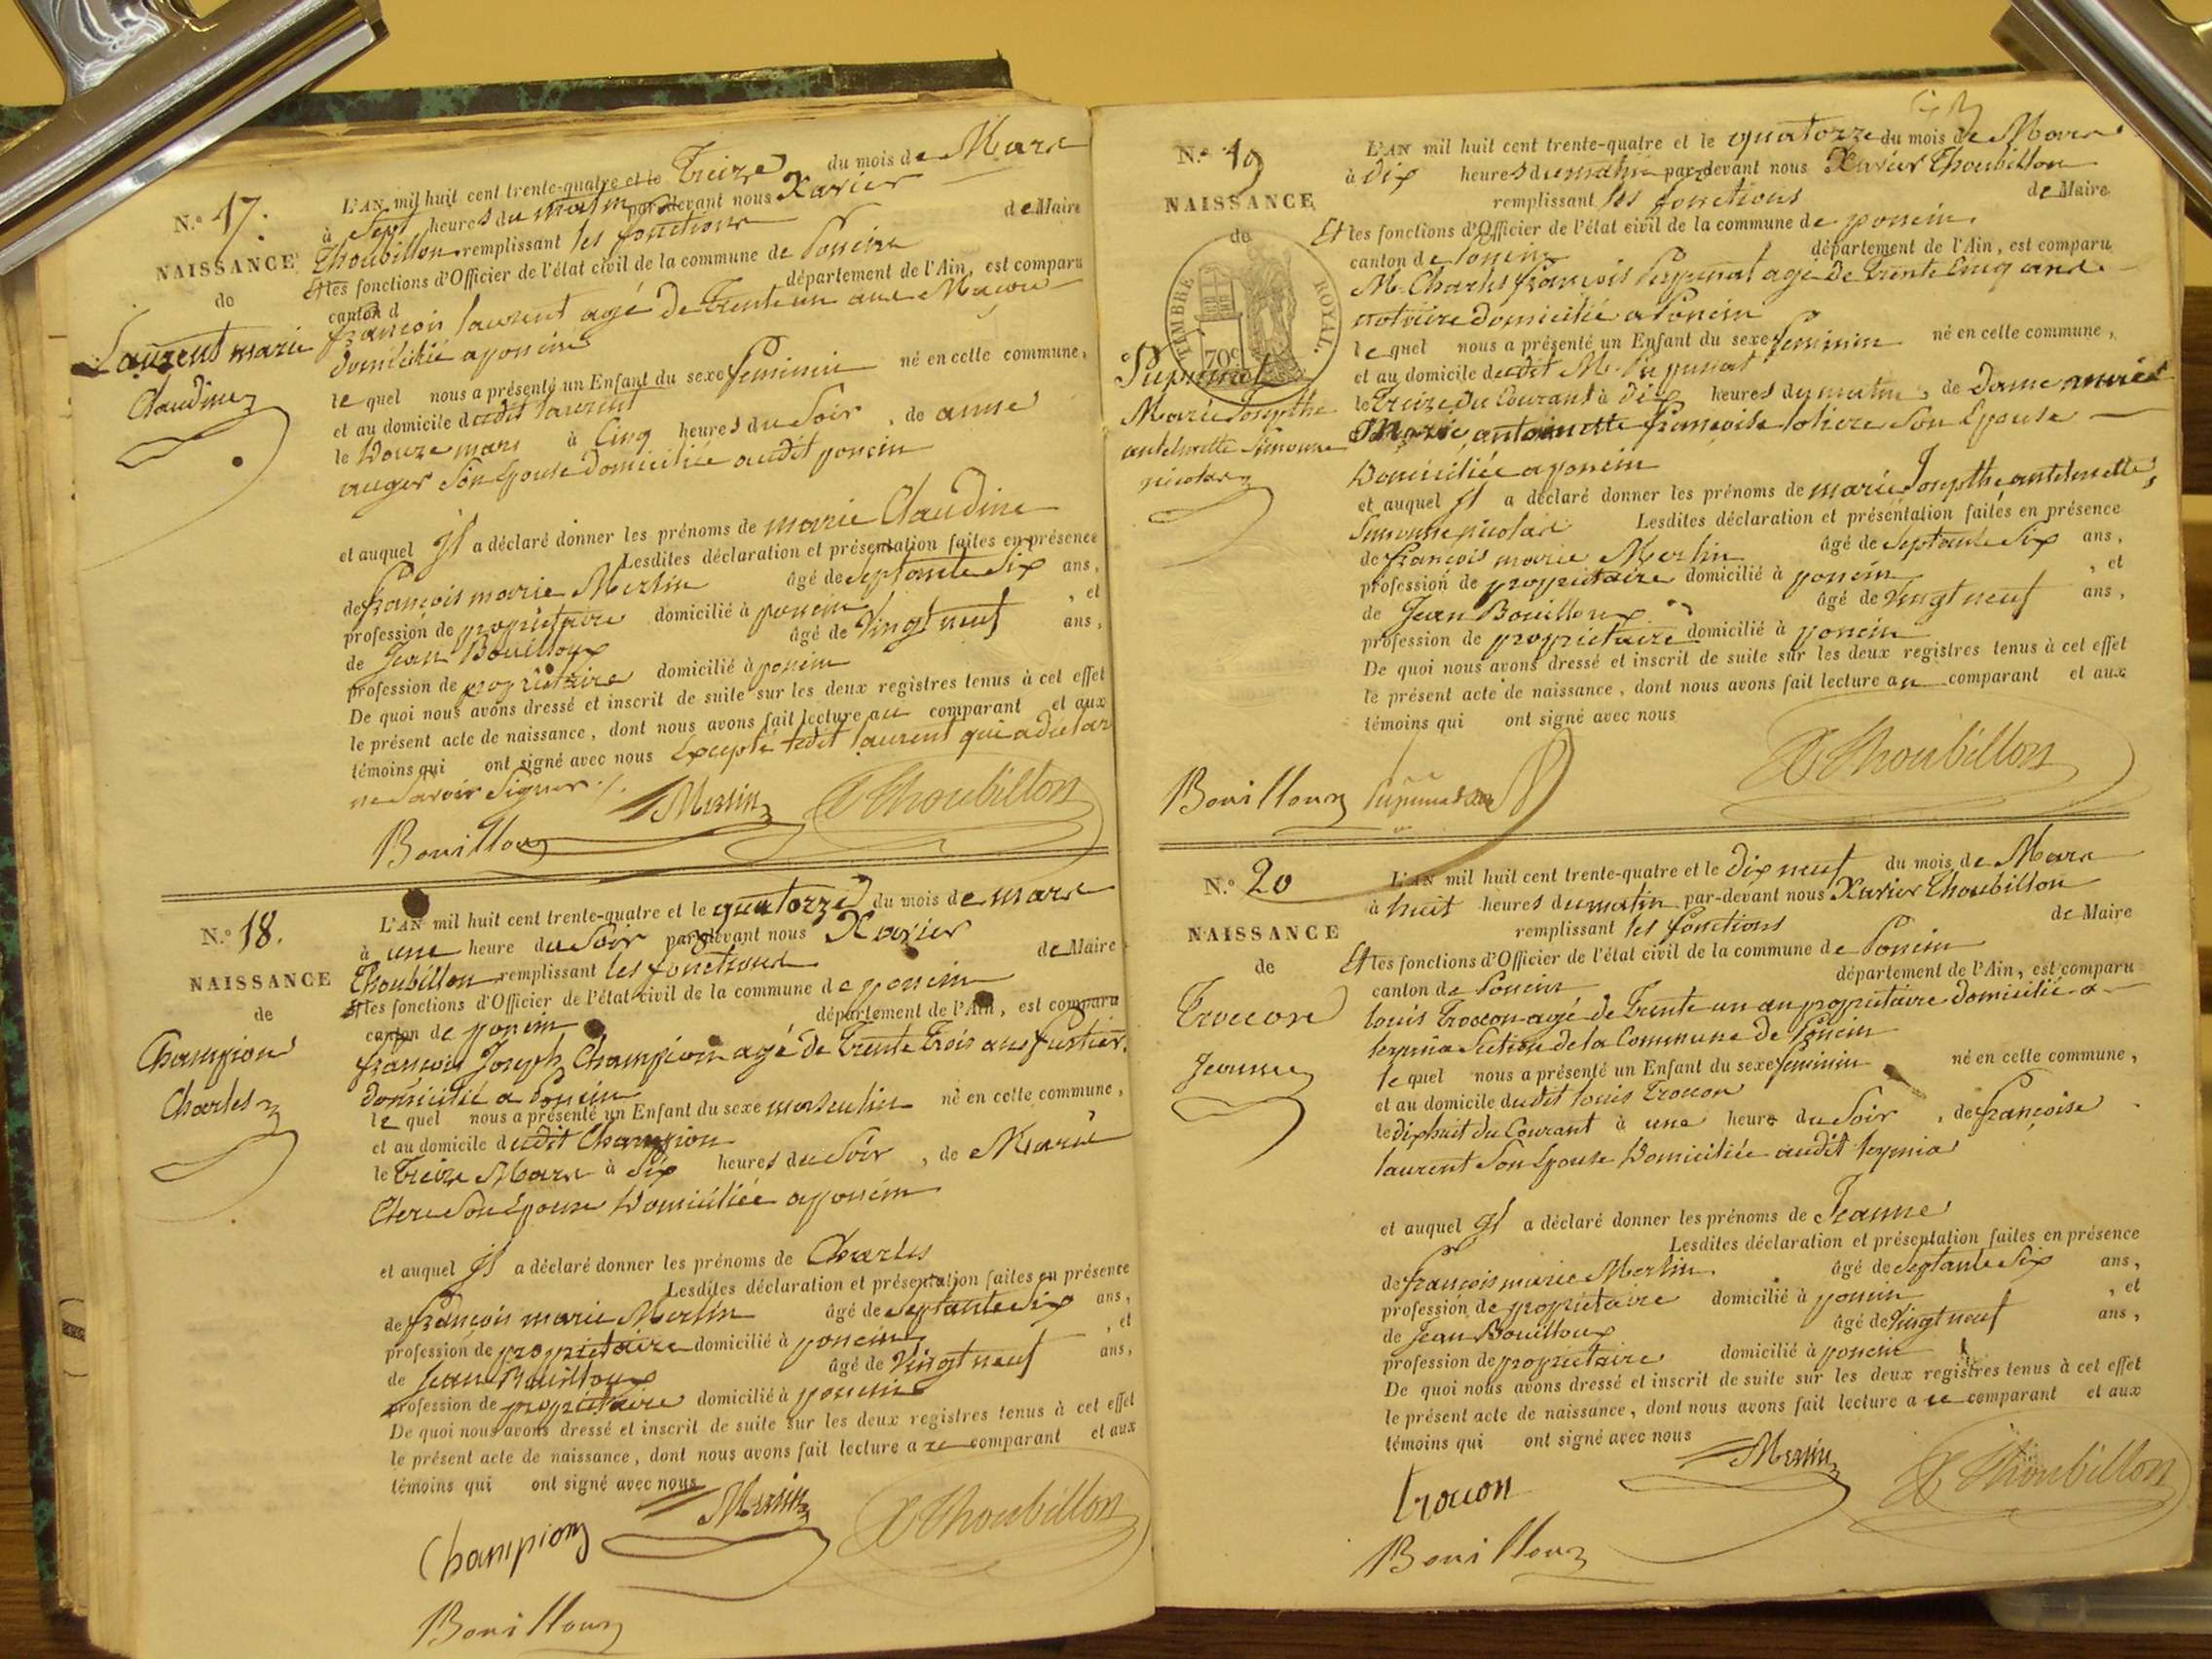 N.o 17.
NAISSANCE
de
Laurent marie
Claudine
L'AN mil huit cent trente-quatre et le Treize du mois de Mars
à Sept heures du matin par-devant nous Xavier
Thoubillon remplissant les fonctions de Maire
Et les fonctions d'Officier de l'état civil de la commune de Poncin
canton d département de l'Ain, est comparu
françois laurent agé de trente un ans Maçon
domicilié a poncin
le quel nous a présenté un Enfant du sexe feminin né en cette commune,
et au domicile dudit laurent
le Douze mars à Cinq heures du Soir, de anne
auger Son Epouse domiciliée audit poncin
et auquel Il a déclaré donner les prénoms de marie Claudine
Lesdites déclaration et présentation faites en présence
de françois marie Merlin âgé de Septante Six ans,
profession de propriétaire domicilié à poncin, et
de Jean Bouilloux âgé de Vingt neuf ans,
profession de propriétaire domicilié à poncin
De quoi nous avons dressé et inscrit de suite sur les deux registres tenus à cet effet
le présent acte de naissance, dont nous avons fait lecture au comparant et aux
témoins qui ont signé avec nous Excepté ledit laurent qui a déclaré
ne Savoir Signer ./.
Merlin X Thoubillon
Bouilloux
N.o 18.
NAISSANCE
de
Champion
Charles
L'AN mil huit cent trente-quatre et le quatorze du mois de mars
à une heure du Soir par-devant nous Xavier
Thoubillon remplissant les fonctions de Maire
Et les fonctions d'Officier de l'état civil de la commune de poncin
canton de poncin département de l'Ain, est comparu
françois Joseph Champion agé de Trente Trois ans fustier
domicilié a Poncin
le quel nous a présenté un Enfant du sexe masculin né en cette commune,
et au domicile dudit Champion
le Treize Mars à Six heures du Soir, de Marie
Clerc Son Epouse Domiciliée a poncin
et auquel Il a déclaré donner les prénoms de Charles
Lesdites déclaration et présentation faites en présence
de françois marie Merlin âgé de Septante Six ans,
profession de propriétaire domicilié à poncin, et
de Jean Bouilloux âgé de Vingt neuf ans,
profession de propriétaire domicilié à poncin
De quoi nous avons dressé et inscrit de suite sur les deux registres tenus à cet effet
le présent acte de naissance, dont nous avons fait lecture a ce comparant et aux
témoins qui ont signé avec nous
Merlin
Champion X Thoubillon
Bouilloux
N.o 19
NAISSANCE
de
TIMBRE ROYAL.
70c
Marie Josephte
antelmette Simonne
nicolas
L'AN mil huit cent trente-quatre et le quatorze du mois de Mars
à Dix heures du matin par-devant nous Xavier Thoubillon
remplissant les fonctions de Maire
Et les fonctions d'Officier de l'état civil de la commune de poncin
canton de Poncin département de l'Ain, est comparu
M. Charles françois agé de Trente Cinq ans
notaire domicilié a Poncin
le quel nous a présenté un Enfant du sexe feminin né en cette commune,
et au domicile dudit M.
le Treize du Courant à Dix heures du matin, de Dame
Marie antoinette françoise Son Epouse
Domiciliée a poncin
et auquel Il a déclaré donner les prénoms de marie Josephte antelmette
Simonne nicolas Lesdites déclaration et présentation faites en présence
de françois marie Merlin âgé de Septante Six ans,
profession de propriétaire domicilié à poncin, et
de Jean Bouilloux âgé de Vingt neuf ans,
profession de propriétaire domicilié à poncin
De quoi nous avons dressé et inscrit de suite sur les deux registres tenus à cet effet
le présent acte de naissance, dont nous avons fait lecture au comparant et aux
témoins qui ont signé avec nous
X Thoubillon
Bouilloux
N.o 20
NAISSANCE
de
Trocon
Jeanne
L'AN mil huit cent trente-quatre et le Dix neuf du mois de Mars
à huit heures du matin par-devant nous Xavier Thoubillon
remplissant les fonctions de Maire
Et les fonctions d'Officier de l'état civil de la commune de Poncin
canton de Poncin département de l'Ain, est comparu
louis Trocon agé de Trente un an propriétaire domicilié a
leymia Section de la Commune de Poncin
le quel nous a présenté un Enfant du sexe feminin né en cette commune,
et au domicile dudit louis Trocon
le dix huit du Courant à une heure du Soir, de françoise
laurent Son Epouse Domiciliée audit leymia
et auquel Il a déclaré donner les prénoms de Jeanne
Lesdites déclaration et présentation faites en présence
de françois marie Merlin âgé de Septante Six ans,
profession de propriétaire domicilié à poncin, et
de Jean Bouilloux âgé de Vingt neuf ans,
profession de propriétaire domicilié à poncin
De quoi nous avons dressé et inscrit de suite sur les deux registres tenus à cet effet
le présent acte de naissance, dont nous avons fait lecture a ce comparant et aux
témoins qui ont signé avec nous
Merlin
Trocon X Thoubillon
Bouilloux